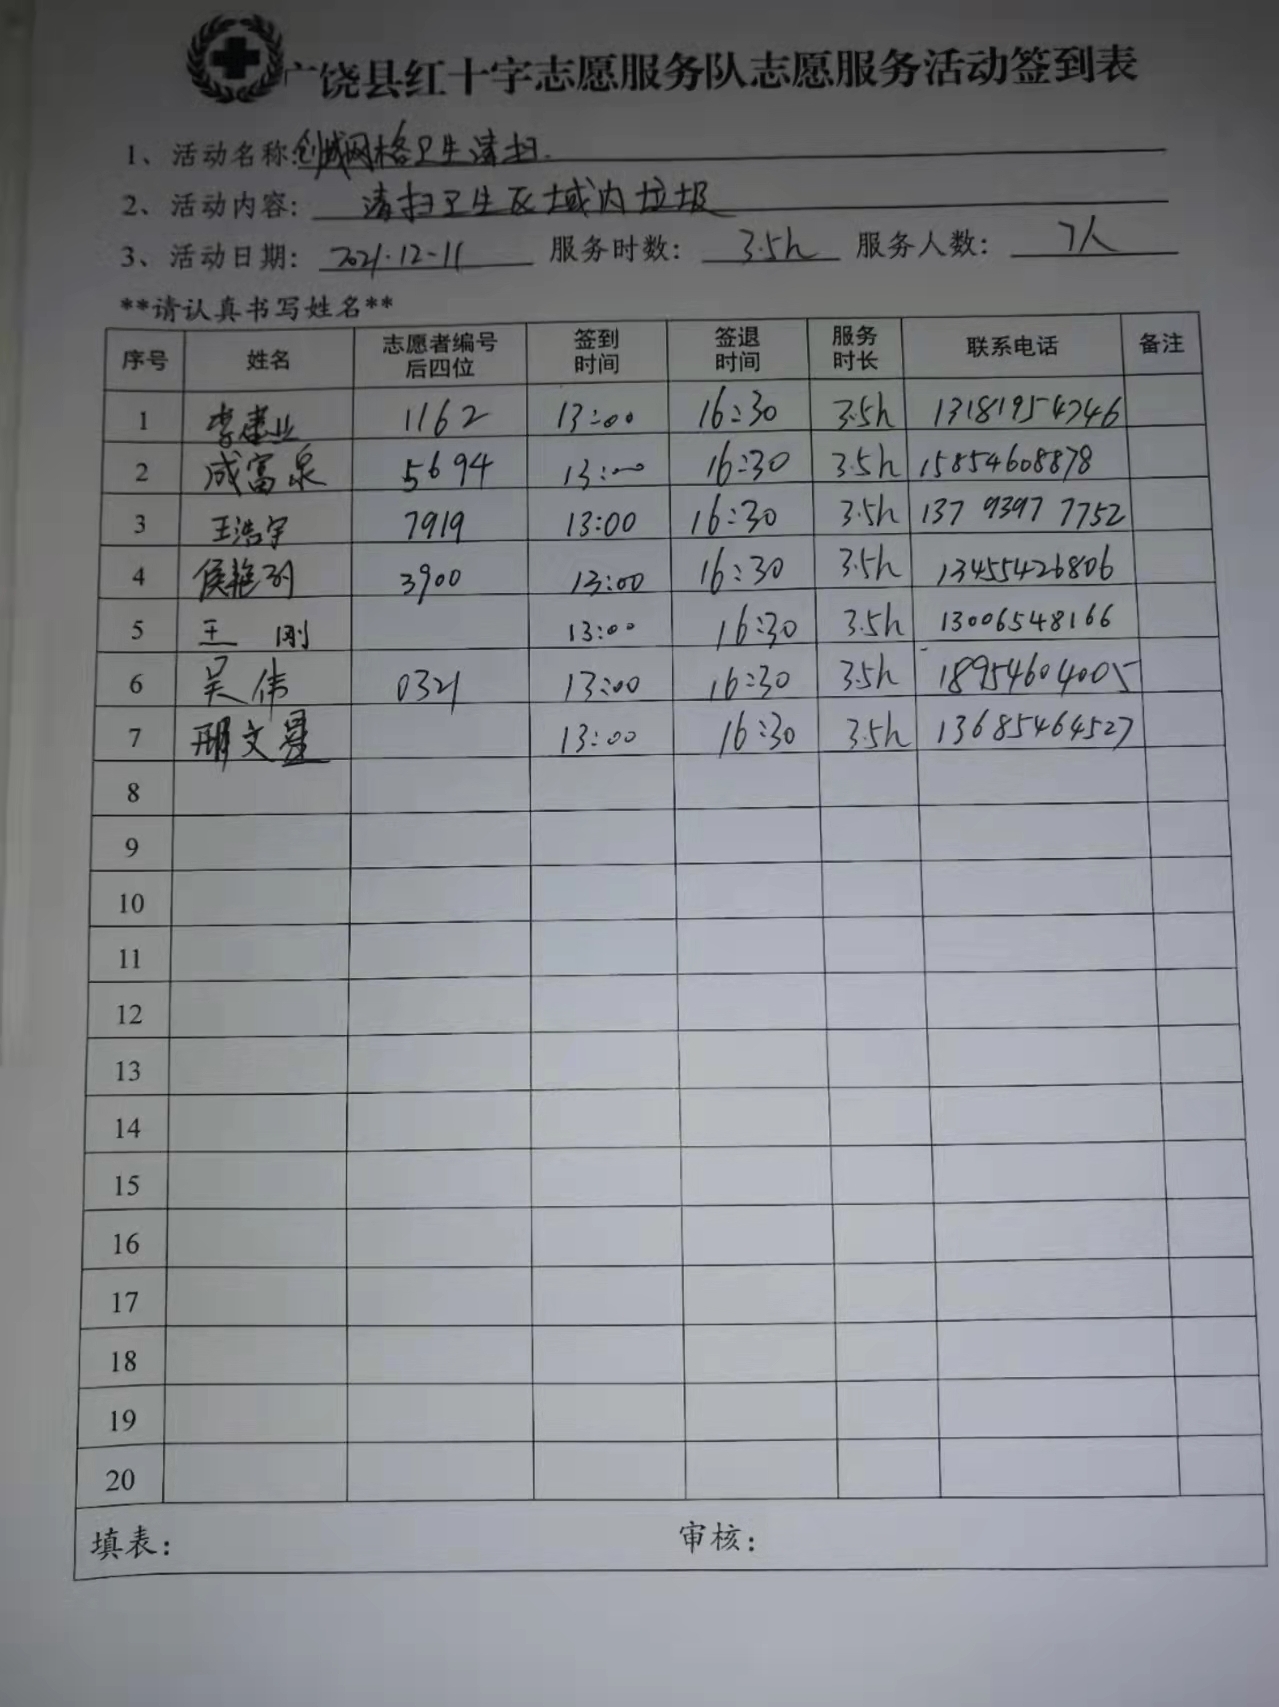 广饶县红十字志愿服务队志愿服务活动签到表
1、活动名称:创城网格卫生清扫.
2、活动内容: 清扫卫生区域内垃圾
3、活动日期: 2021.12-11 服务时数: 3.5h 服务人数: 7人
**请认真书写姓名**
序号 姓名 志愿者编号后四位 签到时间 签退时间 服务时长 联系电话 备注
1 李建业 1162 13:00 16:30 3.5h 13181954746
2 成富泉 5694 13:00 16:30 3.5h 15854608878
3 王浩宇 7919 13:00 16:30 3.5h 137 9397 7752
4 侯艳 3900 13:00 16:30 3.5h 13455426806
5 王 刚 13:00 16:30 3.5h 13006548166
6 吴伟 0321 13:00 16:30 3.5h 18954604005
7 文星 13:00 16:30 3.5h 13685464527
8
9
10
11
12
13
14
15
16
17
18
19
20
填表: 审核: